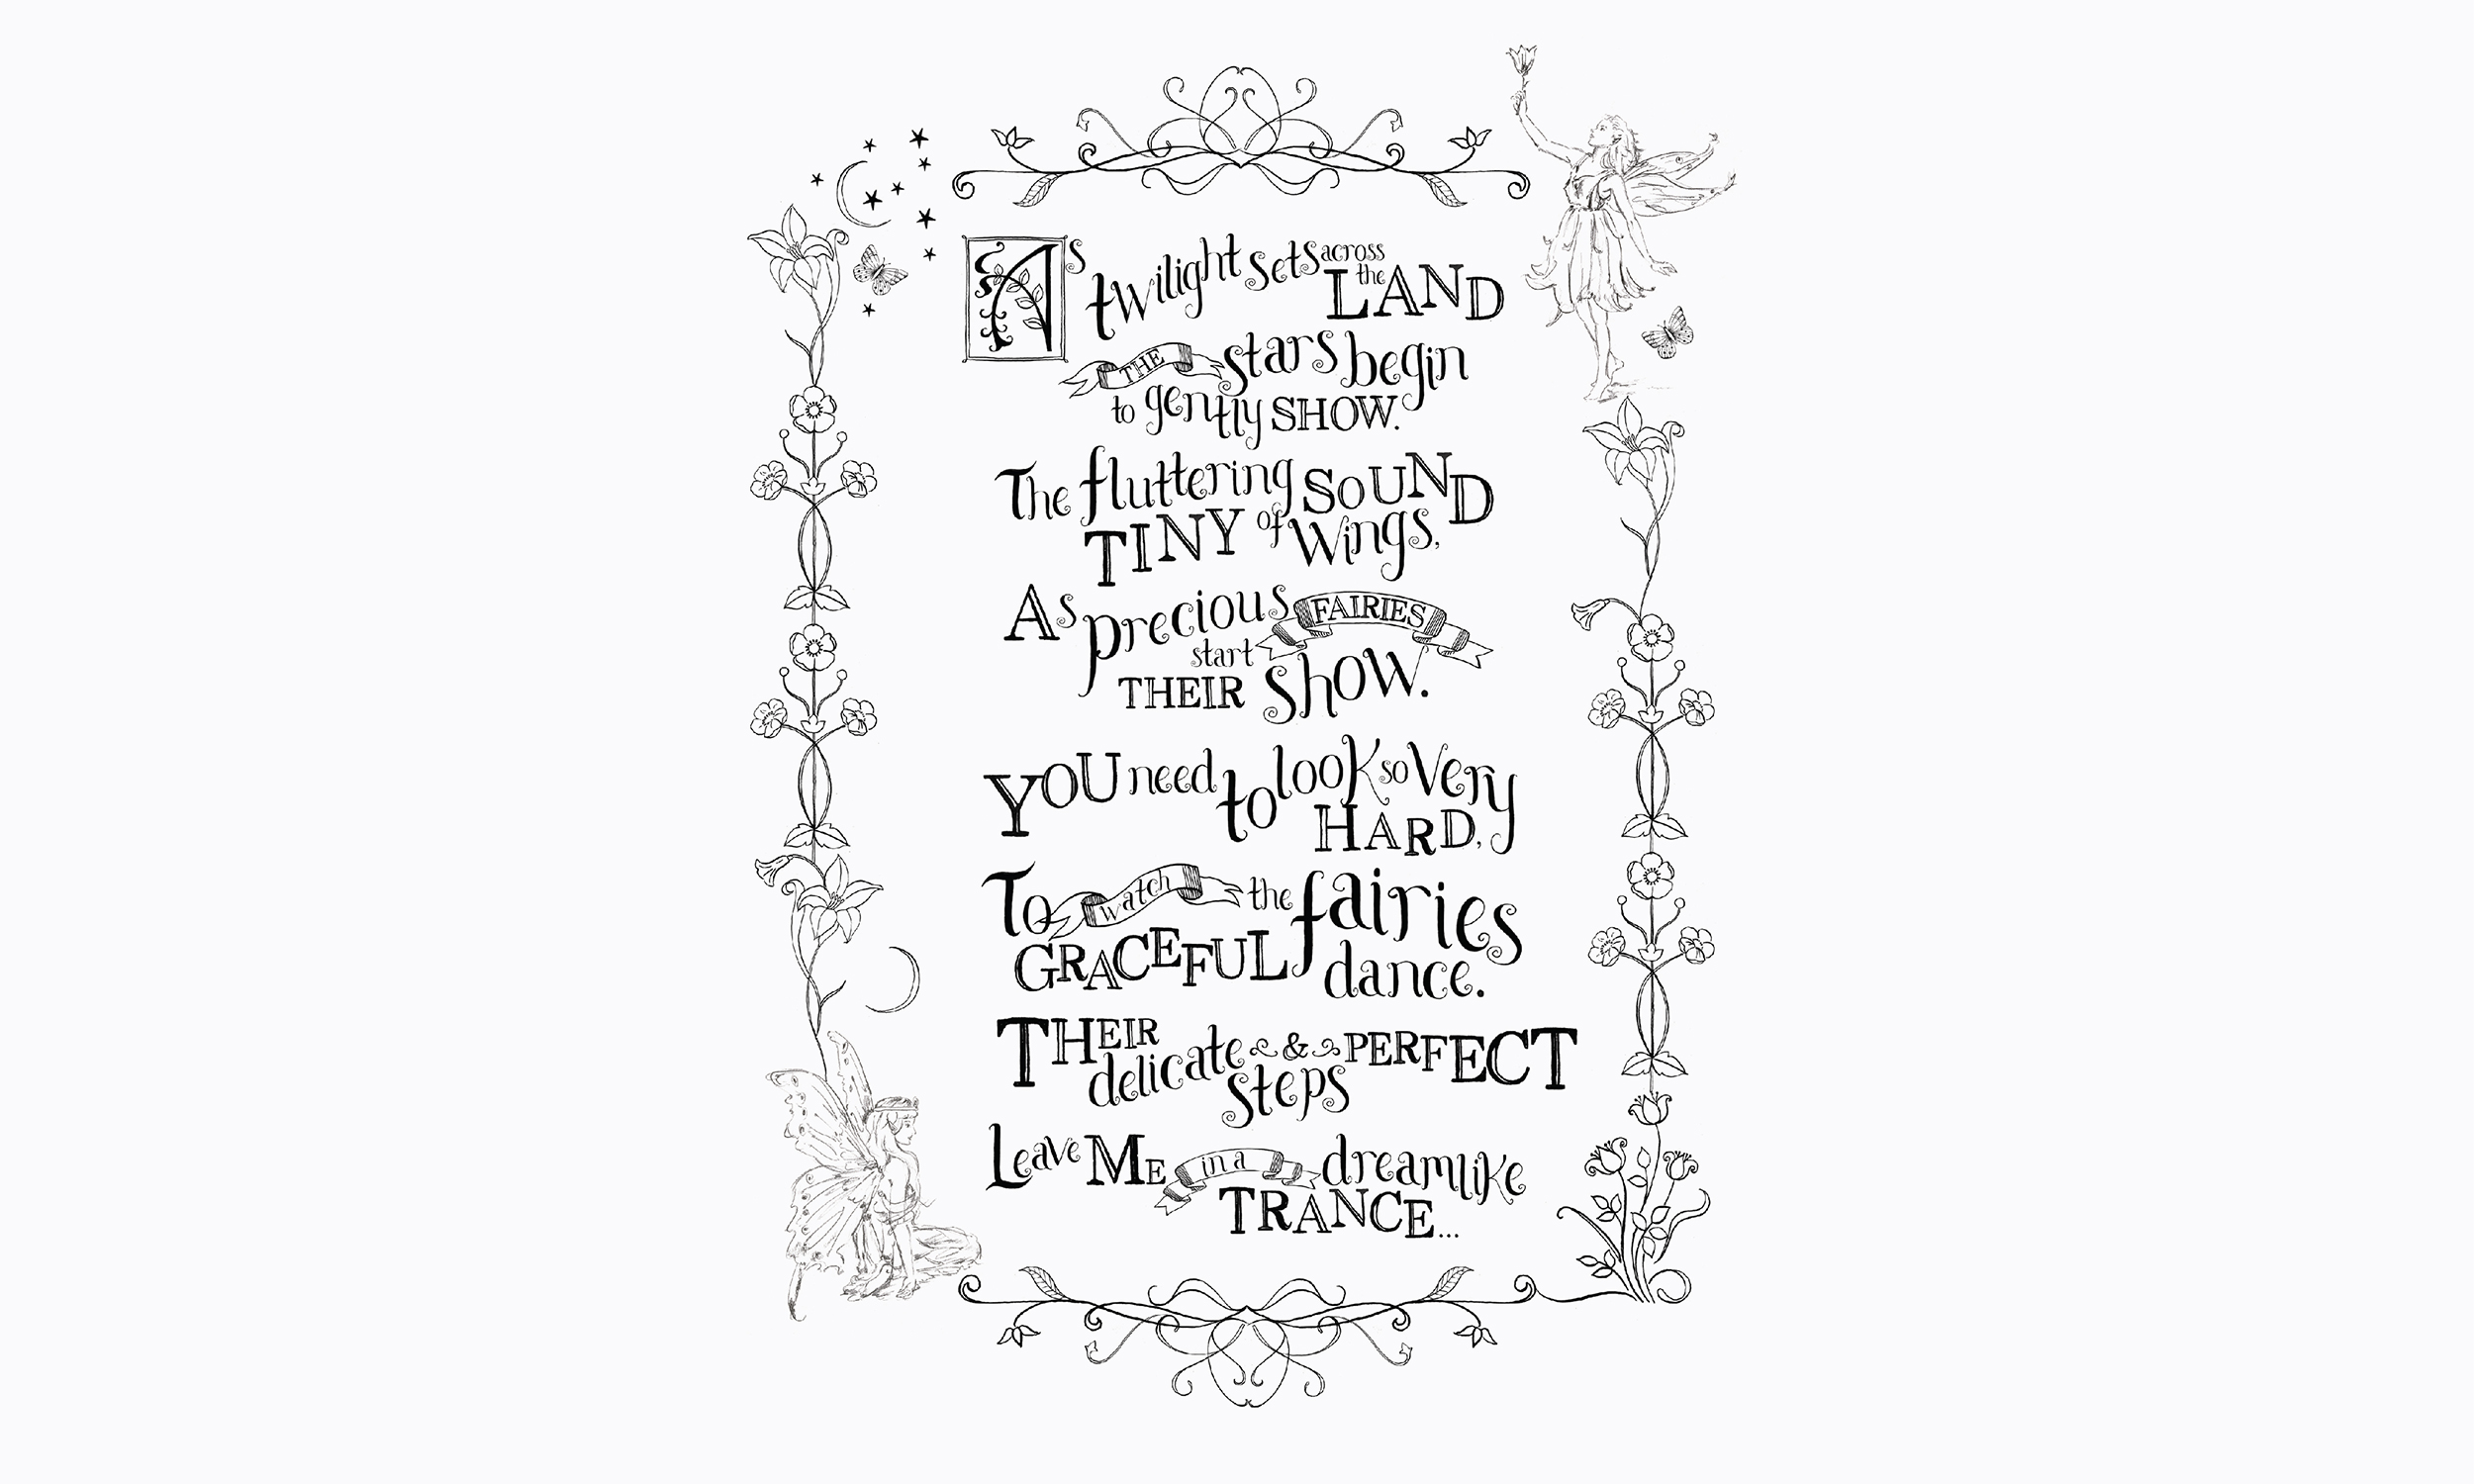 As twilight sets across the LAND
THE stars begin
to gently SHOW.
The fluttering SOUND
of TINY Wings,
As precious FAIRIES
start
THEIR show.
YOU need to look so Very
HARD,
To watch the fairies
GRACEFUL dance.
THEIR delicate & PERFECT
steps
Leave ME in a dreamlike
TRANCE...